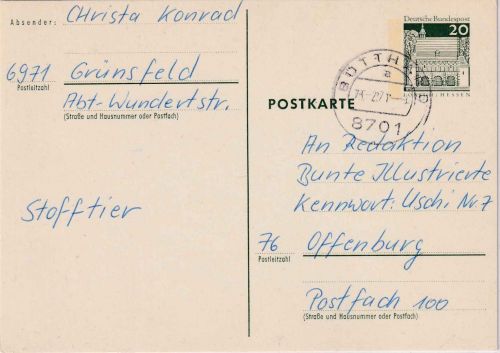 Absender: CHrista Konrad
6971 Grünsfeld
Postleitzahl
Abt-Wundertstr.
(Straße und Hausnummer oder Postfach)
Stofftier
Deutsche Bundespost
20
HESSEN
BÜTTH
a
8701
POSTKARTE
An Redaktion
Bunte Illustrierte
Kennwort: Uschi Nr 7
76 Offenburg
Postleitzahl
Postfach 100
(Straße und Hausnummer oder Postfach)